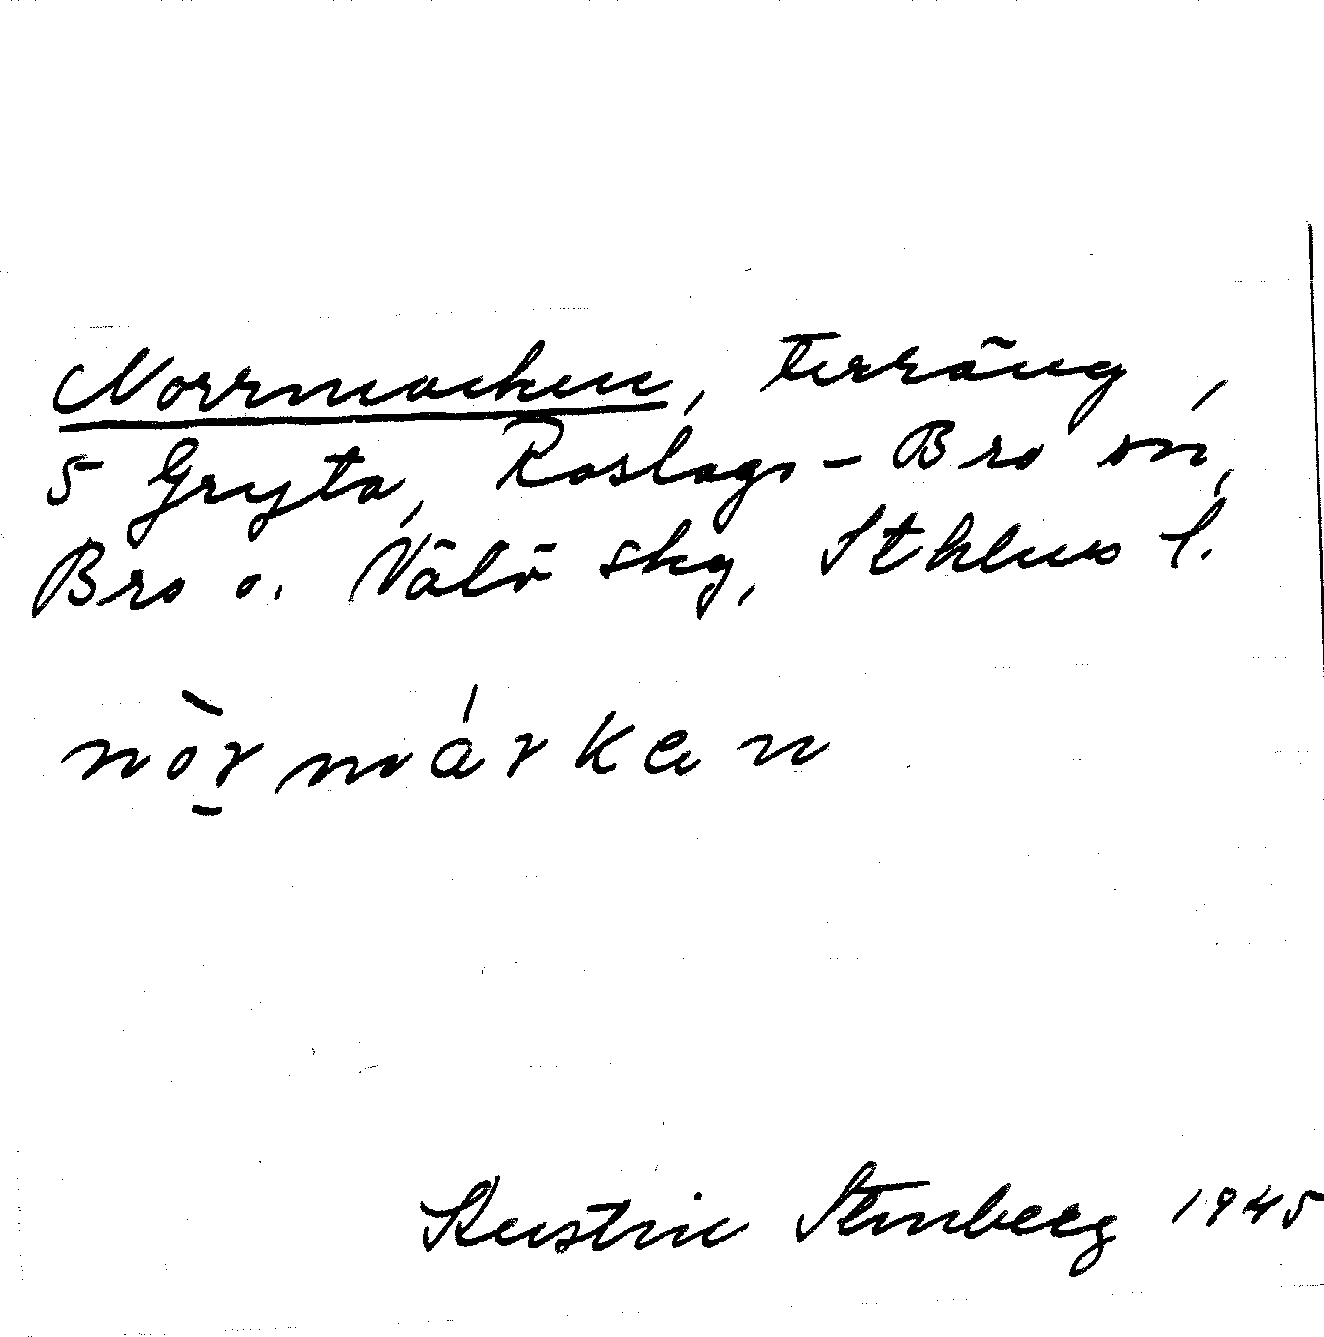 Norrmarken, terräng,
5 Gryta, Roslags-Bro sn,
Bro o. Vätö skg, Sthlms l.
nòr márken
Kerstin Stenberg 1945